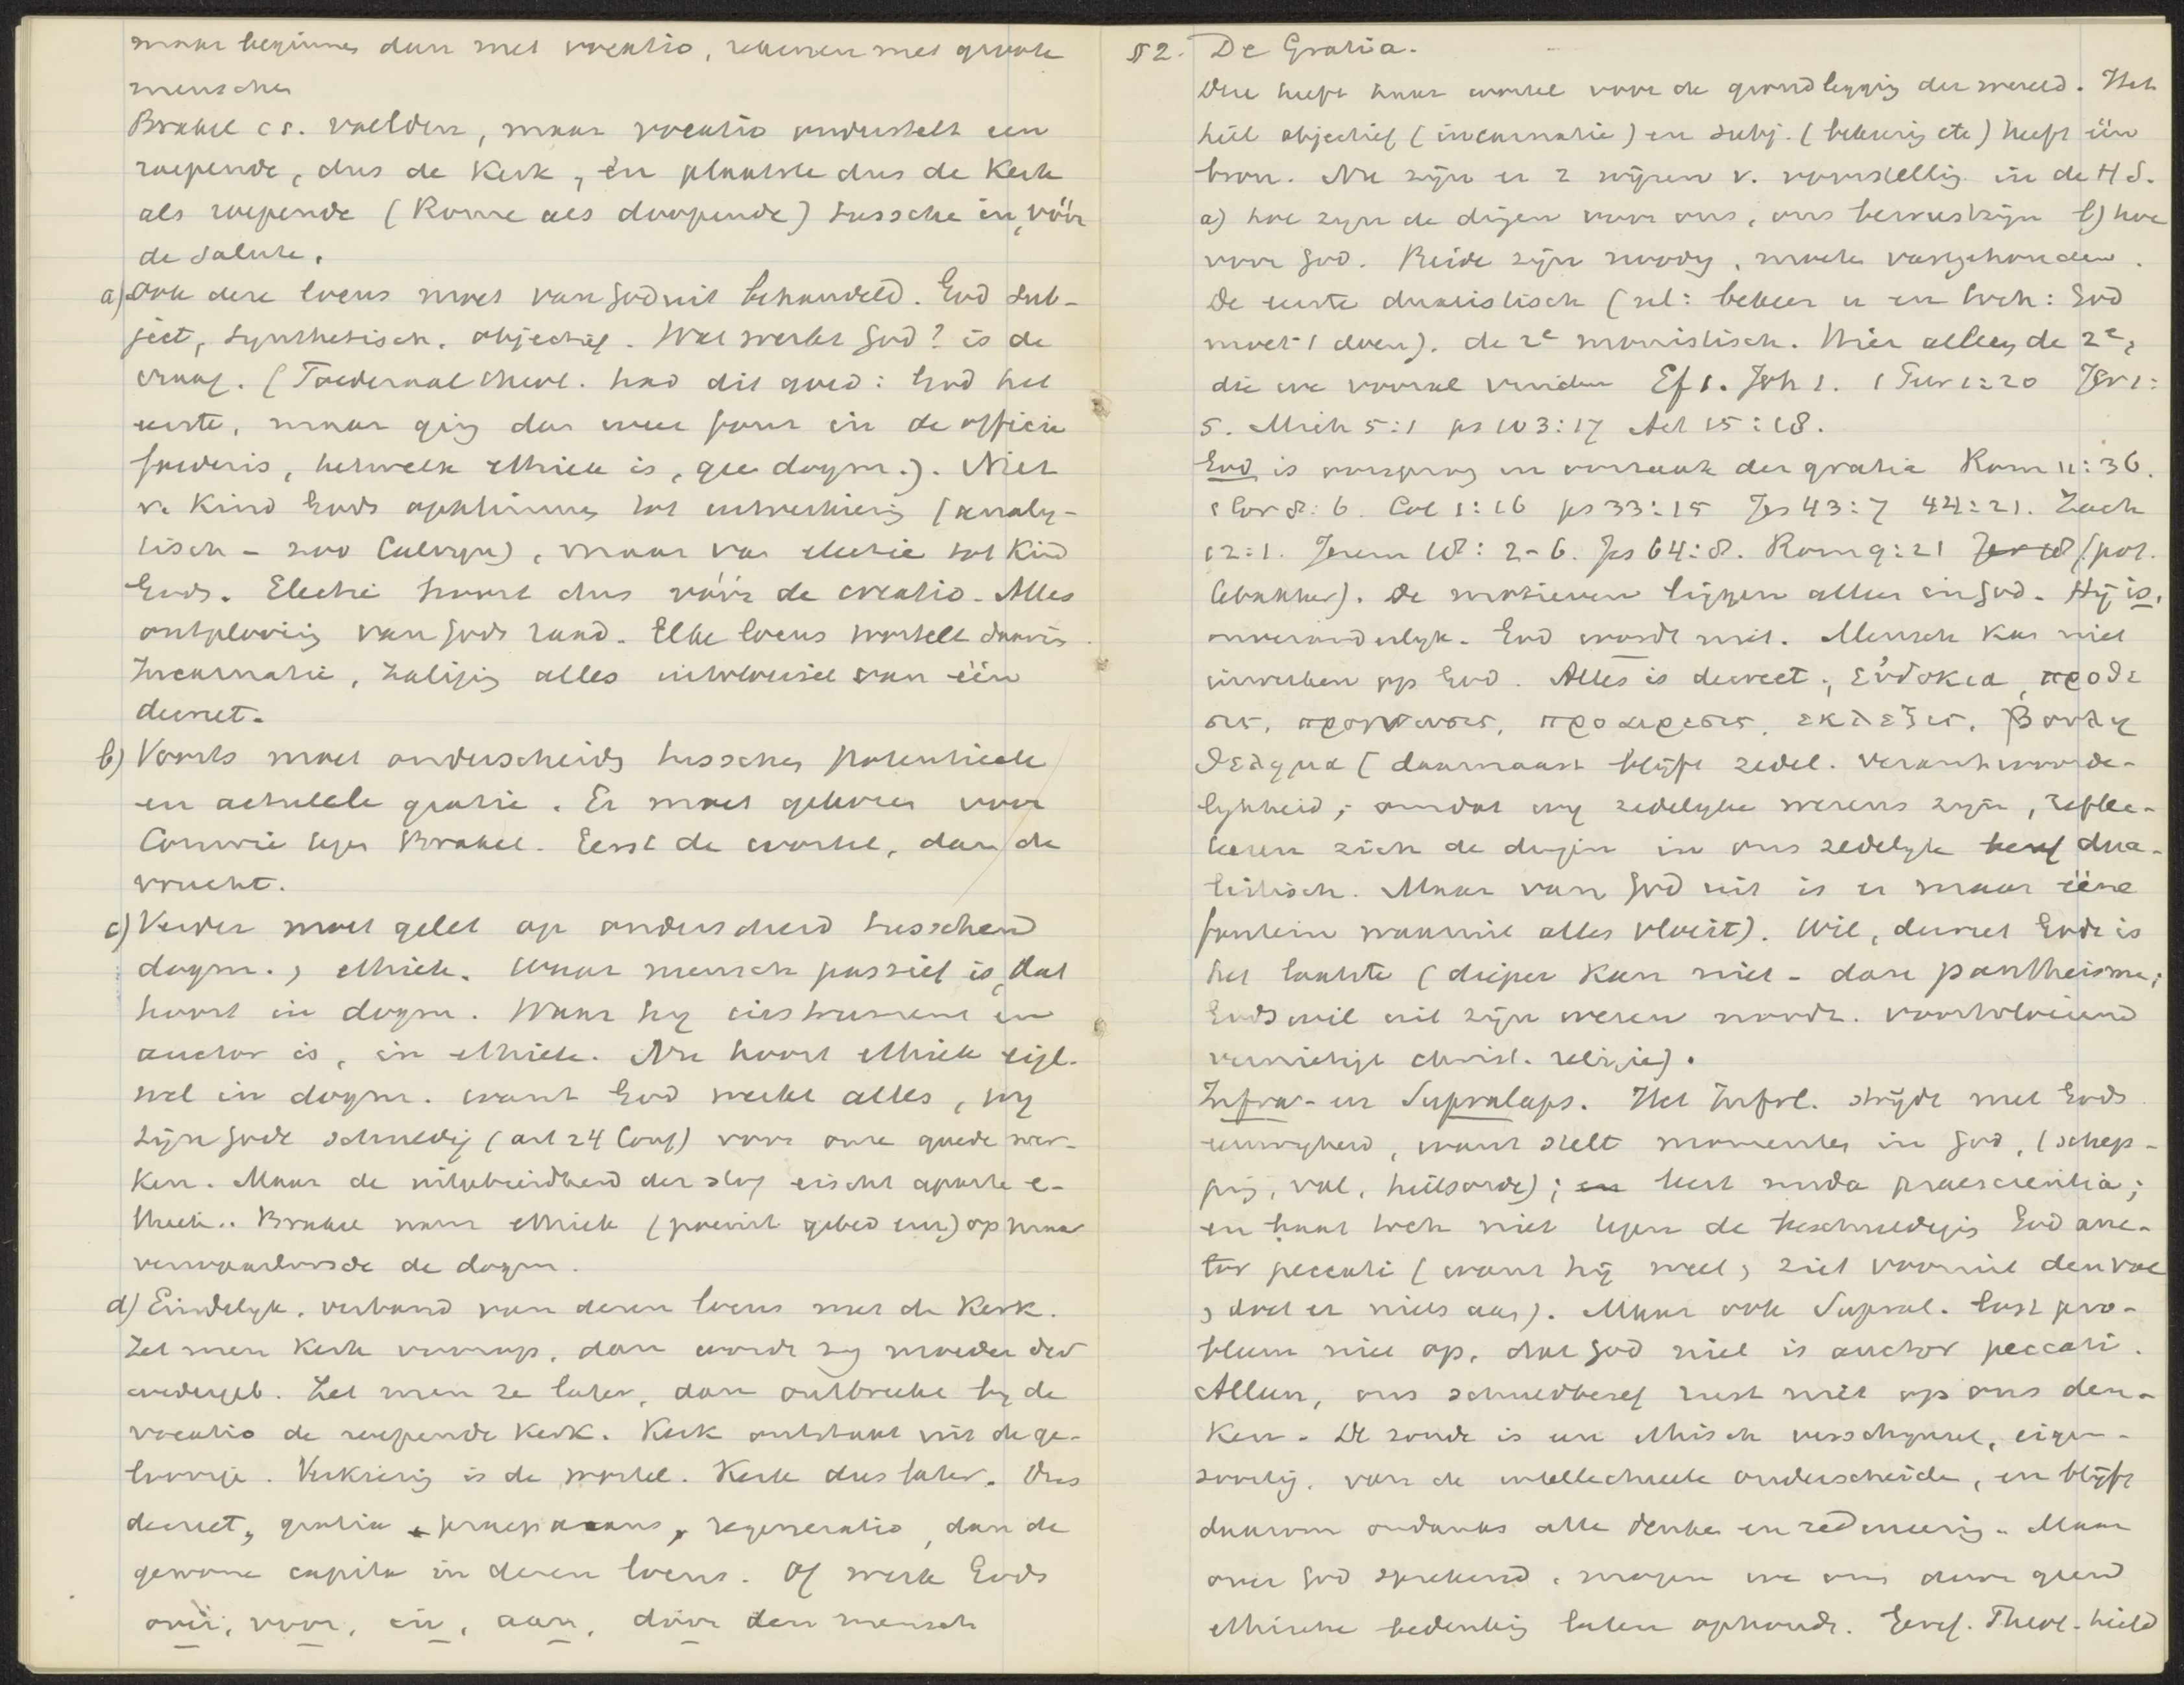 maar beginnen dan met vocatio, rekenen met groote
menschen
Brakel cs. voelden, maar vocatio onderstelt een
roepende, dus de Kerk, en plaatste dus de Kerk
als roepende (Rome als doopende) tussche en, vóór
de salute.
a) Ook deze locus moet van God uit behandeld. God sub-
ject, synthetisch, objectief. Wat werkt God? is de
vraag. (Foederaal theol. had dit goed: God het
eerste, maar ging dan weer fout in de officia
foederis, hetwelk ethiek is, gee dogm.). Niet
v. Kind Gods opklimmen tot uitverkiezing (analy-
tisch - zoo Calvyn), maar van electie tot Kind
Gods. Electie hoort dus vóór de creatio. Alles
ontplooiing van Gods raad. Elke locus wortelt daarin
Incarnatie, zaliging alles uitvloeisel van één
decreet.
b) Voorts moet onderscheiden tusschen potentieele
en actueele gratie. Er moet gekozen voor
Comrie tegen Brakel. Eerst de wortel, dan de
vrucht.
c) Verder moet gelet op onderscheid tusschen
dogm. & ethiek. Waar mensch passief is, dat
hoort in dogm. Waar hy instrument en
auctor is, in ethiek. Nu hoort ethiek eigl.
wel in dogm. want God werkt alles, wy
zijn Gode schuldig (art 24 Conf) voor onze goede wer-
ken. Maar de uitgebreidheid der stof eischt aparte e-
thiek. Brakel nam ethiek (poenit gebed enz) op maar
verwaarloosde de dogm.
d) Eindelyk, verband van dezen locus met de Kerk.
Zet men Kerk voorop, dan wordt zy moeder der
wedergeb. Zet men ze later, dan ontbreekt by de
vocatio de roepende Kerk. Kerk ontstaat uit de ge-
loovige. Verkiezing is de wortel. Kerk dus later. Dus
decreet, gratia praeparans, regeneratio, dan de
gewone capita in dezen locus. Of werk Gods
over, voor, in, aan, door den mensch
§ 2. De Gratia.
Deze heeft haar wortel voor de grondlegging der wereld. Het
heil objectief (incarnatie) en subj. (bekeering etc) heeft één
bron. Nu zijn er 2 wijzen v. voorstelling in de H S.
a) hoe zyn de dingen voor ons, ons bewustzijn b) hoe
voor God. Beide zijn noodig, moeten vastgehouden.
De eerste dualistisch (nl: bekeer u en toch: God
moet 't doen). de 2e monistisch. Hier alleen de 2e,
die we vooral vinden Ef 1. Joh 1. 1 Petr 1:20 Jer 1:
5. Mich 5:1 ps 103:17 Act 15:18.
God is oorsprong en oorzaak der gratia Rom 11:36.
1 Cor 8:6. Col 1:16 ps 33:15 Jes 43:7 44:21. Zach
12:1. Jerem 18: 2-6. Jes 64:8. Rom 9:21 Jer 18 (pot.
tebakker). De motieven liggen alleen in God. Hij is,
onveranderlyk. God wordt niet. Mensch kan niet
inwerken op God. Alles is decreet, εὐδοκια, προθε
σις, προγνωσις, προαιρεσις, εκλεξις, βουλη
θελημα (daarnaast blijft zedel. verantwoorde-
lykheid; omdat wy zedelyke wezens zyn, reflec-
teeren zich de dingen in ons zedelyk besef dua-
listisch. Maar van God uit is er maar ééne
fontein waaruit alles vloeit). Wil, decreet Gods is
het laatste (dieper kan niet - dan pantheisme;
Gods wil uit zijn wezen noodz. voortvloeiend
vernietigt christ. religie).
Infra- en Supralaps. Het Infral. strijdt met Gods
eeuwigheid, want stelt momenten in God, (schep-
ping, val, heilsorde); en leert nuda praescientia;
en baat toch niet tegen de beschuldiging God auc-
tor peccati (want hij weet & ziet vooruit den val
& doet er niets aan). Maar ook Supral. lost pro-
bleem niet op, dat God niet is auctor peccati.
Alleen, ons schuldbesef rust niet op ons den-
ken. De zonde is een ethisch verschynsel, eigen-
soortig, van de intellectueele onderscheiden, en blijft
daarom ondanks alle denken en redeneering. Maar
over God sprekend, mogen we ons door geen
ethische bedenking laten ophouden. Geref. Theol. hield